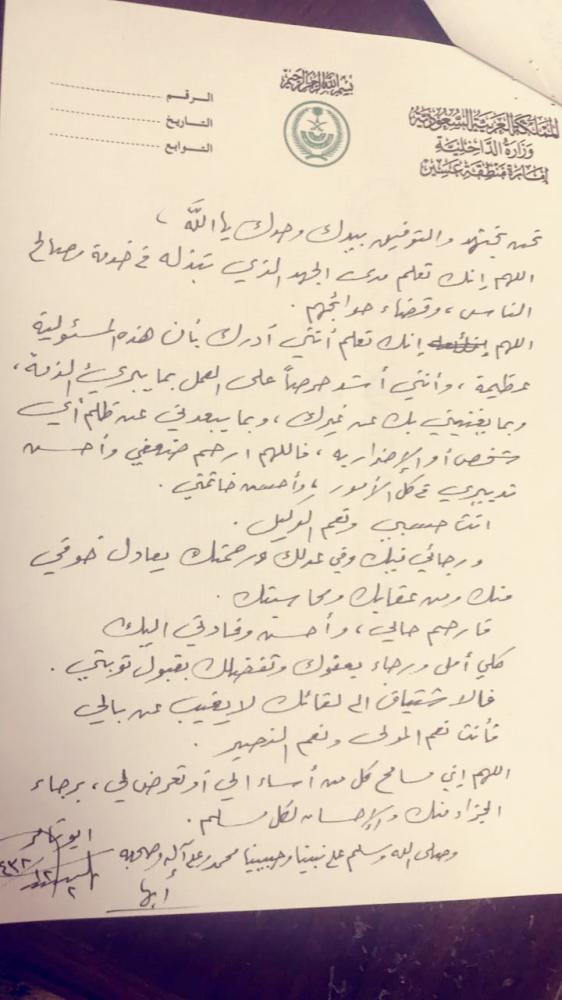 بسم الله الرحمن الرحيم
المملكة العربية السعودية
وزارة الداخلية
إمارة منطقة عسير
الـرقـم
التاريخ
التوابع
نحن نجتهد والتوفيق بيدك وحدك يا الله ،
اللهم إنك تعلم مدى الجهد الذي نبذله في خدمة ومصالح
الناس ، وقضاء حوائجهم .
اللهم إنك تعلم أنني أدرك بأن هذه المسئولية
عظيمة ، وأنني أشد حرصاً على العمل بما يبرئ الذمة ،
وبما يغنيني بك عن غيرك ، وبما يبعدني عن ظلم أي
شخص أو الإضرار به ، فاللهم ارحم ضعفي وأحسن
تدبيري في كل الأمور ، وأحسن خاتمتي .
أنت حسبي ونعم الوكيل .
ورجائي فيك وفي عدلك ورحمتك يعادل خوفي
منك ومن عقابك ومحاسبتك .
فارحم حالي ، وأحسن وفادتي إليك
كلي أمل ورجاء بعفوك وتفضلك بقبول توبتي .
فالاشتياق إلى لقائك لا يغيب عن بالي
فأنت نعم المولى ونعم النصير .
اللهم إني مسامح كل من أساء إلي أو تعرض لي ، برجاء
الجزاء منك والإحسان لكل مسلم .
وصلى الله وسلم على نبينا وحبيبنا محمد وعلى آله وصحبه
أبها